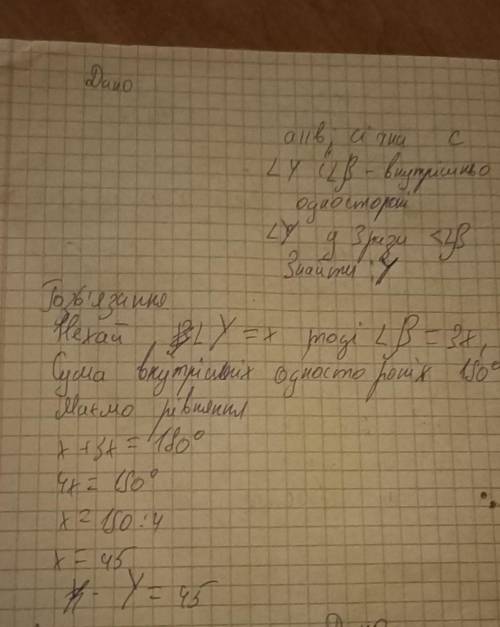 Дано
а||в, січна с
∠γ і ∠β - внутрішньо
односторон
∠γ у 3 рази < ∠β
Знайти: γ
Розв'язання
Нехай ∠γ = x тоді ∠β = 3x,
Сума внутрішніх односторонніх 180°
Маємо рівняння
x + 3x = 180°
4x = 180°
x = 180 : 4
x = 45
γ = 45
Дано